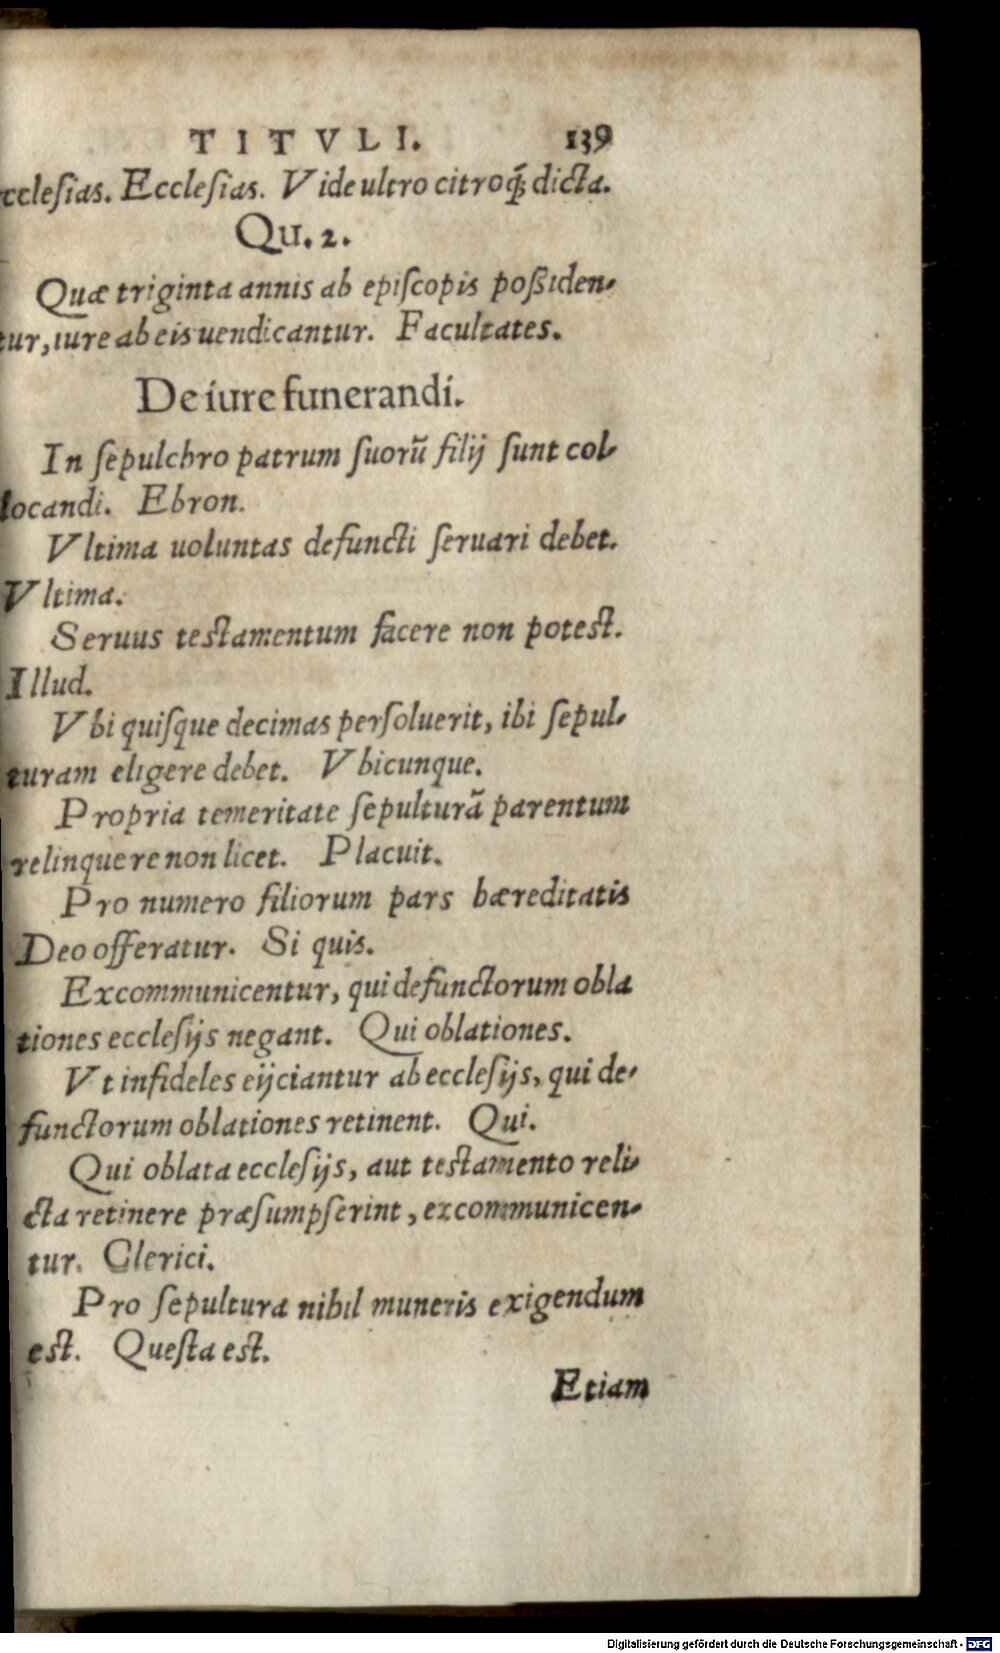 TITVLI. 139
cclesias. Ecclesias. Vide ultro citroq́; dicta.
Qu. 2.
Quæ triginta annis ab episcopis poßiden-
tur, iure ab eis uendicantur. Facultates.
De iure funerandi.
In sepulchro patrum suorũ filij sunt col-
locandi. Ebron.
Vltima uoluntas defuncti seruari debet.
Vltima.
Seruus testamentum facere non potest.
Illud.
Vbi quisque decimas persoluerit, ibi sepul-
turam eligere debet. Vbicunque.
Propria temeritate sepulturã parentum
relinquere non licet. Placuit.
Pro numero filiorum pars hæreditatis
Deo offeratur. Si quis.
Excommunicentur, qui defunctorum obla
tiones ecclesijs negant. Qui oblationes.
Vt infideles eijciantur ab ecclesijs, qui de-
functorum oblationes retinent. Qui.
Qui oblata ecclesijs, aut testamento reli-
cta retinere præsumpserint, excommunicen-
tur. Clerici.
Pro sepultura nihil muneris exigendum
est. Questa est.
Etiam
Digitalisierung gefördert durch die Deutsche Forschungsgemeinschaft - DFG